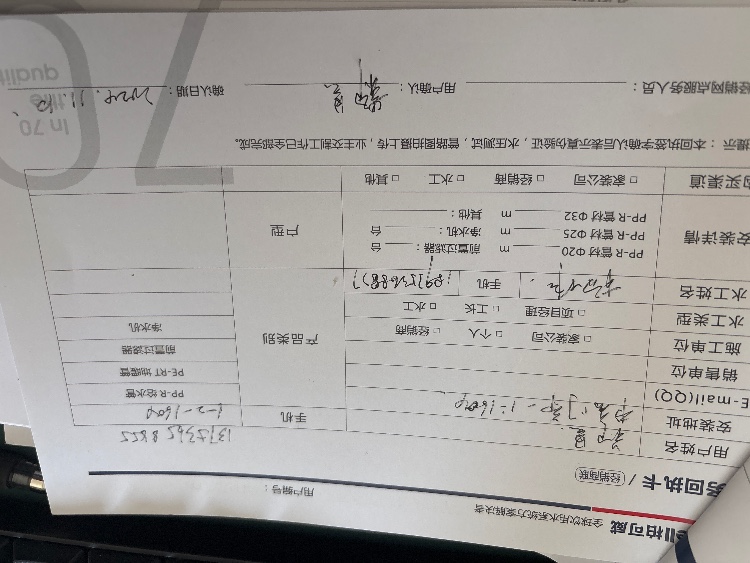 ell柏可威 全球饮用水系统方案解决者
务回执卡 / (经销商联) 用户编号：
用户姓名 手机 13753658855
安装地址 1-2-1602
E-mail(QQ)
销售单位
施工单位 □ 家装公司 □ 个人 □ 经销商
水工类型 □ 项目经理 □ 工长 □ 水工
水工姓名 手机
产品类别
PP-R 给水管
PE-RT 地暖管
前置过滤器
净水机
安装详情
PP-R 管材 Φ20 m 前置过滤器： 台
PP-R 管材 Φ25 m 净水机： 台
PP-R 管材 Φ32 m 其他：
户型
购买渠道 □ 家装公司 □ 经销商 □ 水工 □ 其他
提示：本回执签字确认后表示真伪验证，水压测试，管路图拍摄上传，业主交制工作已全部完成。
经销网点服务人员： 用户确认： 确认日期：2024.11.10.
70
In 70
qualit